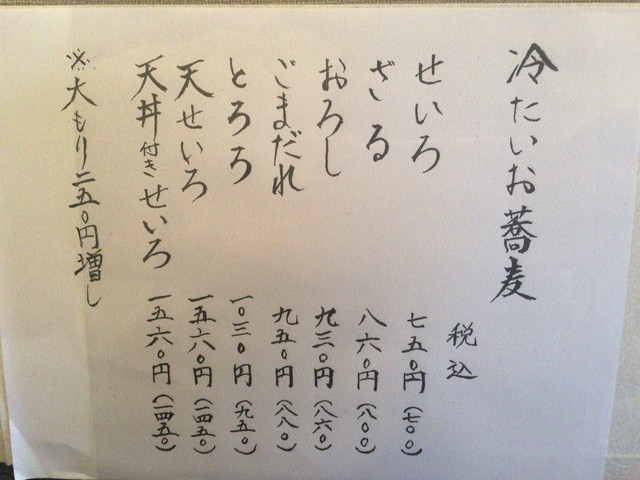 冷たいお蕎麦
税込
せいろ 七五〇円(七〇〇)
ざる 八六〇円(八〇〇)
おろし 九三〇円(八六〇)
ごまだれ 九五〇円(八八〇)
とろろ 一〇三〇円(九五〇)
天せいろ 一五六〇円(一四五〇)
天丼付きせいろ 一五六〇円(一四五〇)
※大もり二五〇円増し